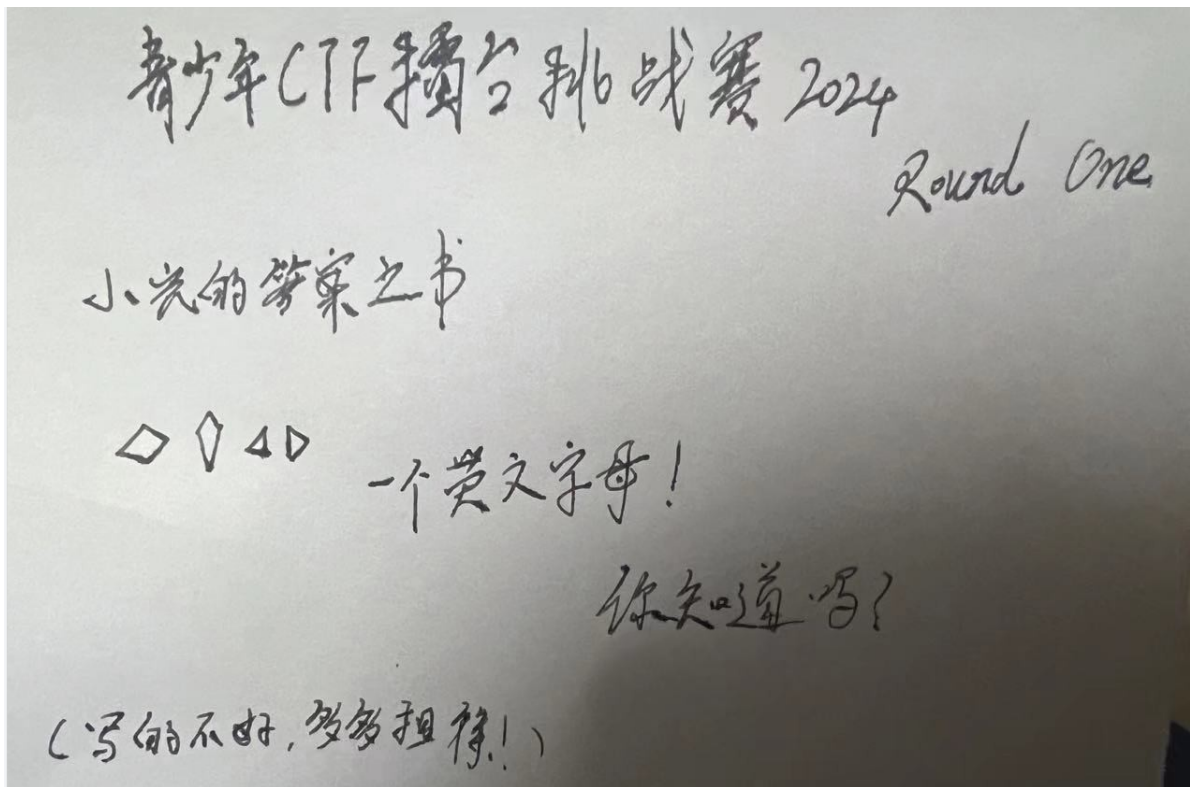 青少年CTF擂台挑战赛 2024
Round One
小光的答案之书
一个英文字母!
你知道吗?
(写的不好,多多担待!)